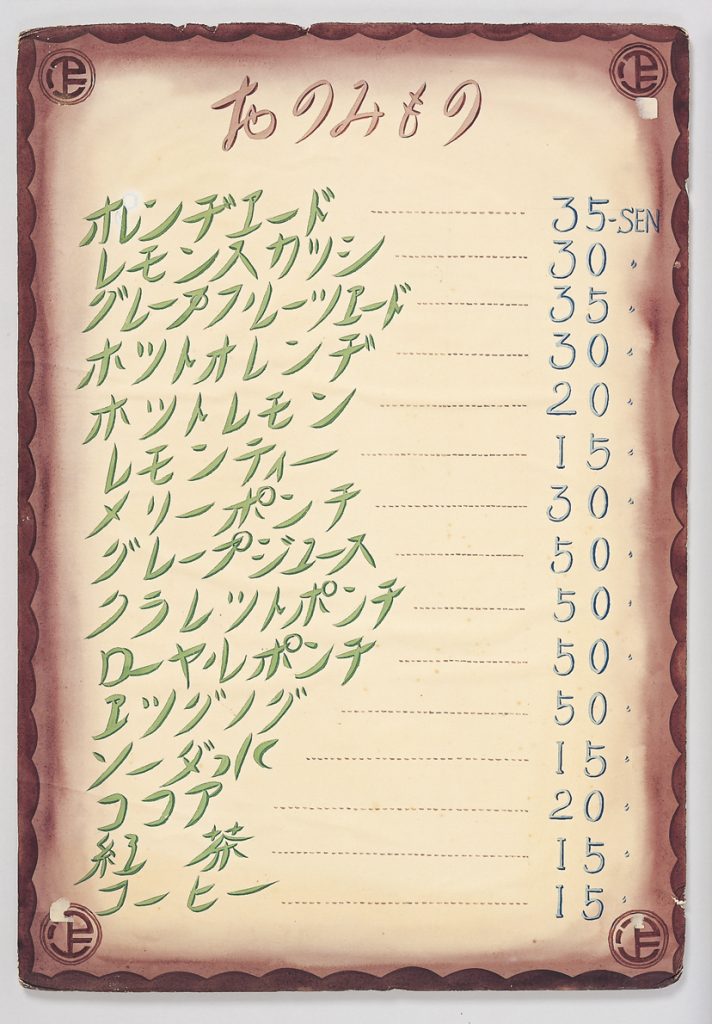 おのみもの
オレンヂエード 35-SEN
レモンスカツシ 30 〃
グレープフルーツエード 35 〃
ホツトオレンヂ 30 〃
ホツトレモン 20 〃
レモンティー 15 〃
メリーポンチ 30 〃
グレープジユース 50 〃
クラレツトポンチ 50 〃
ローヤルポンチ 50 〃
エツグノグ 50 〃
ソーダ水 15 〃
ココア 20 〃
紅茶 15 〃
コーヒー 15 〃